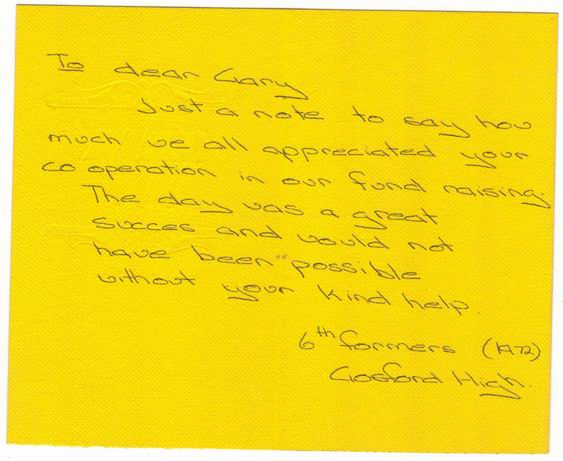 To dear Gary
Just a note to say how
much we all appreciated your
co operation in our fund raising.
The day was a great
succes and would not
have been possible
without your kind help.
6th formers (1972)
Gosford High.